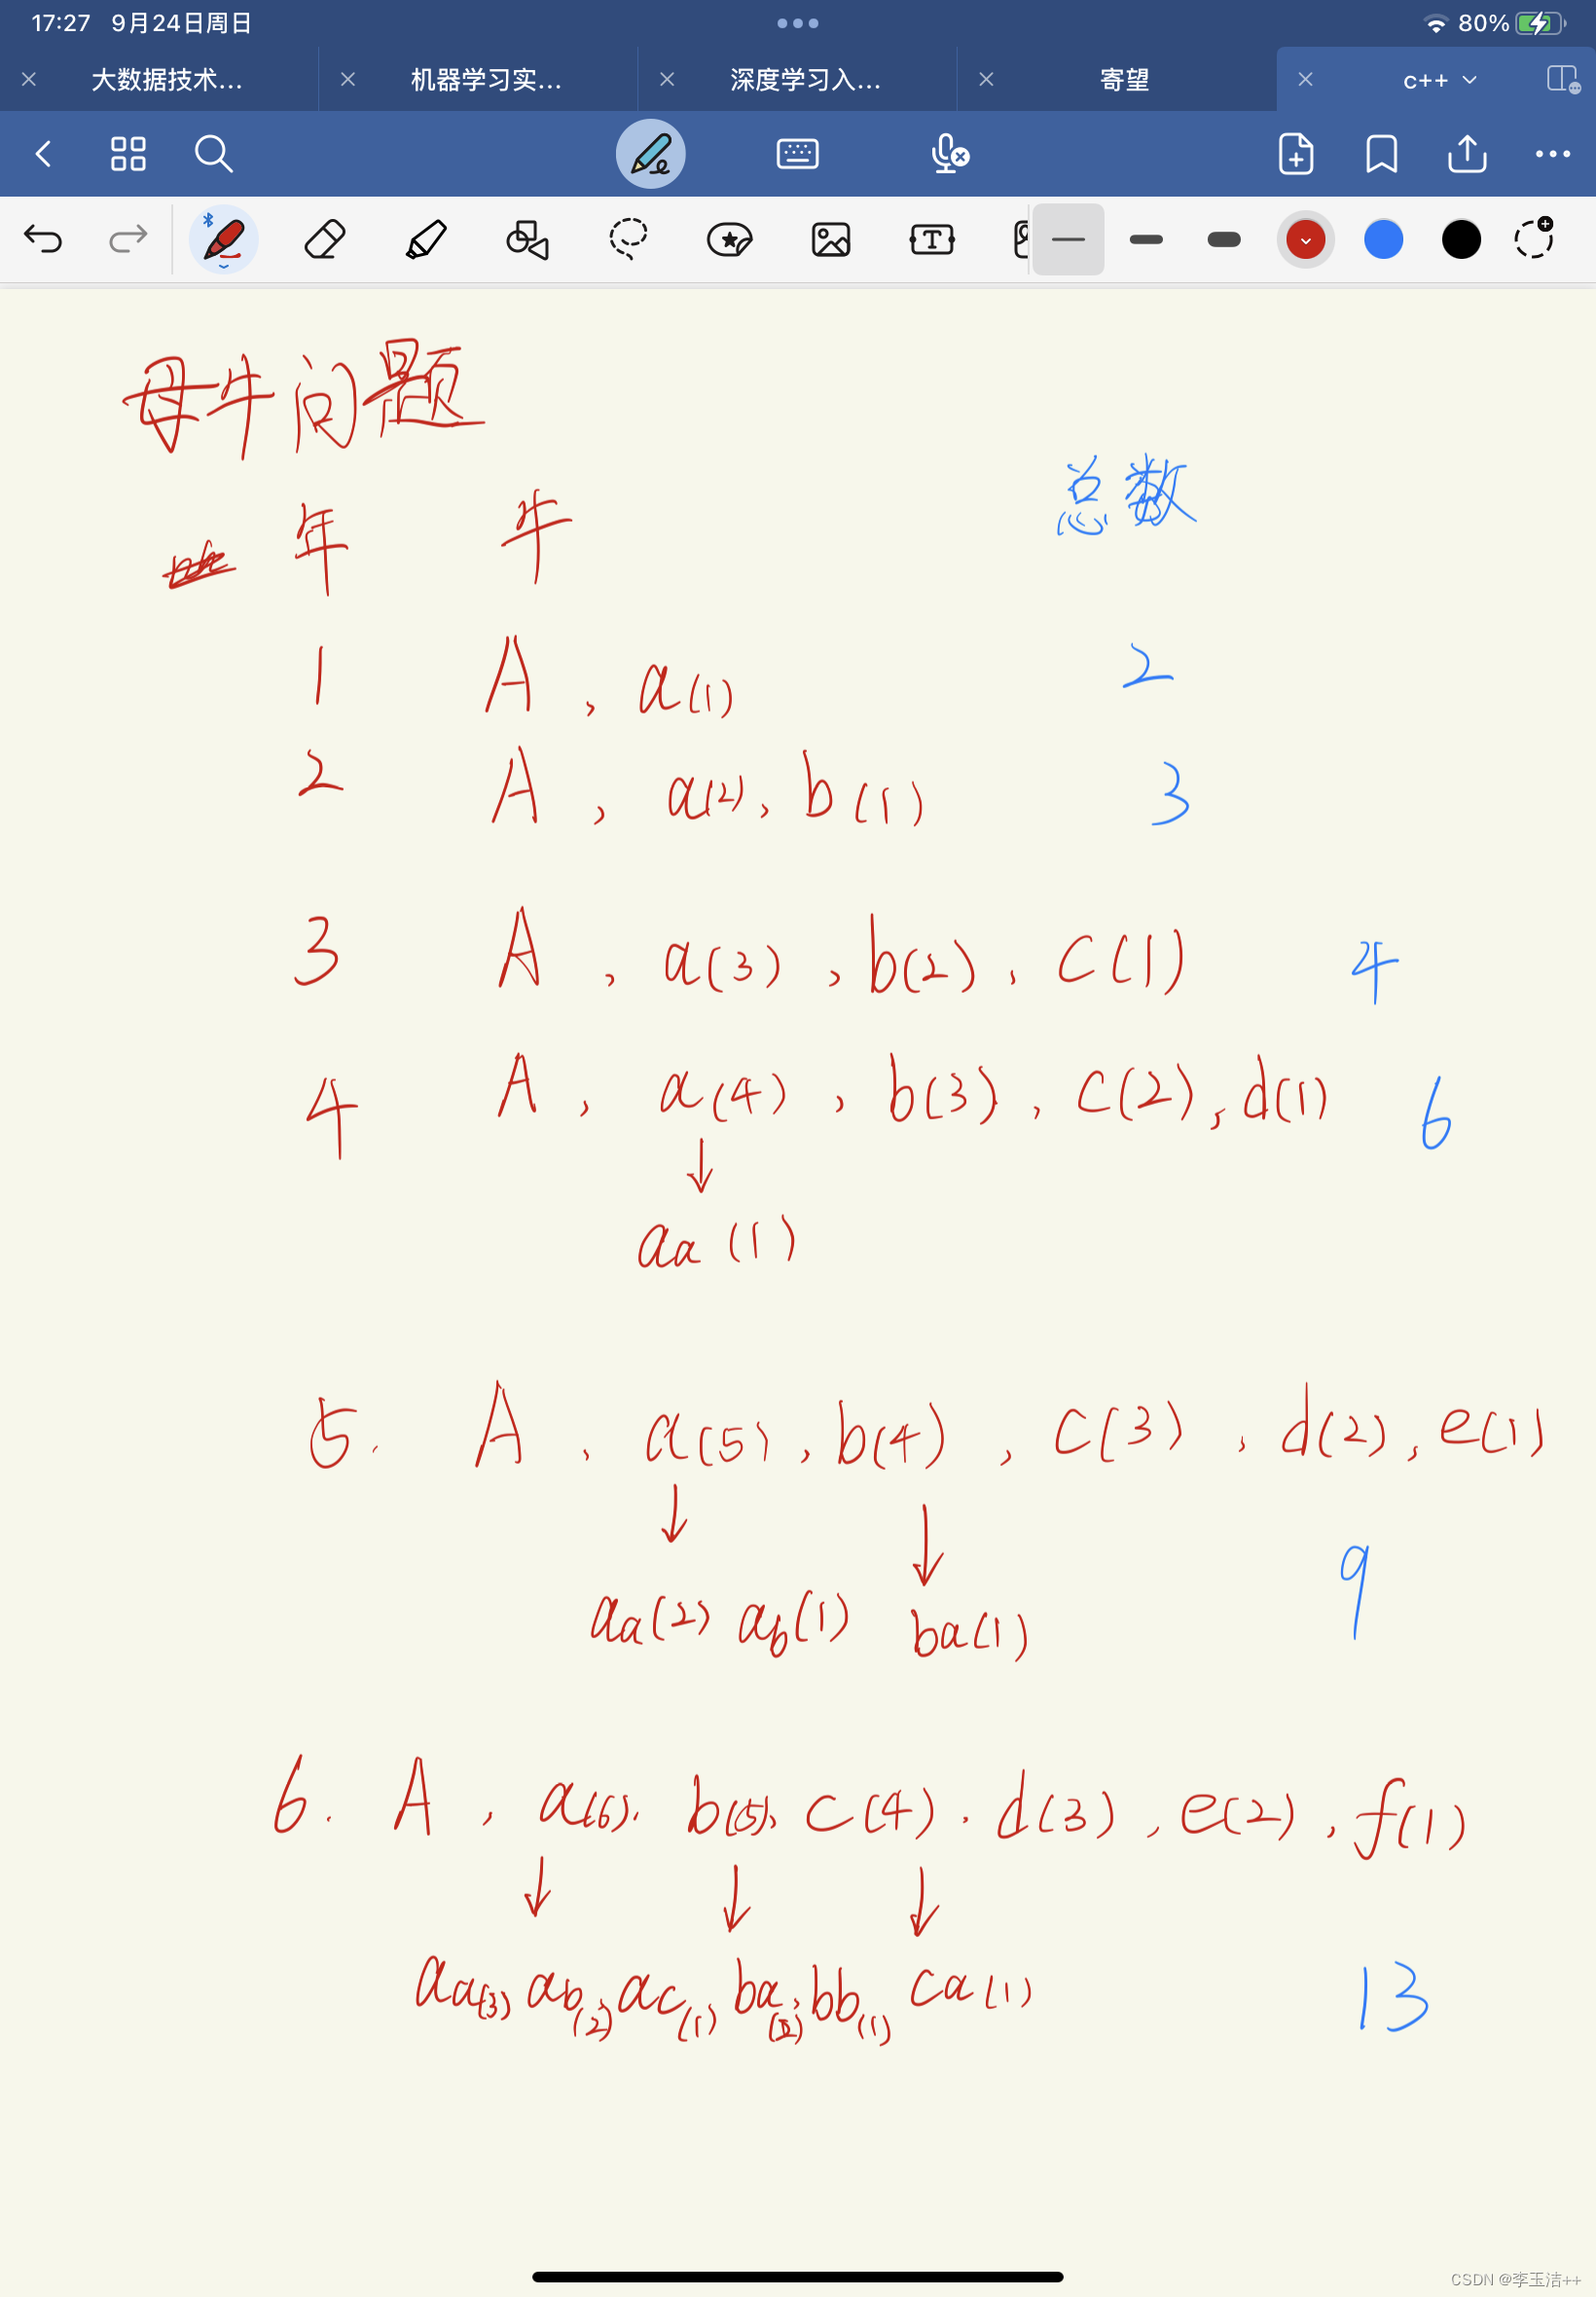 17:27 9月24日周日 80%
大数据技术... 机器学习实... 深度学习入... 寄望 c++
母牛问题
年 牛 总数
1 A , a(1) 2
2 A , a(2), b(1) 3
3 A , a(3) , b(2) , c(1) 4
4 A , a(4) , b(3) , c(2), d(1) 6
aa (1)
5. A , a(5), b(4) , c(3) , d(2), e(1)
aa(2) ab(1) ba(1) 9
6. A , a(6). b(5), c(4) . d(3) , e(2) , f(1)
aa(3) ab(2), ac(1) ba(2), bb(1) ca(1) 13
CSDN @李玉洁++